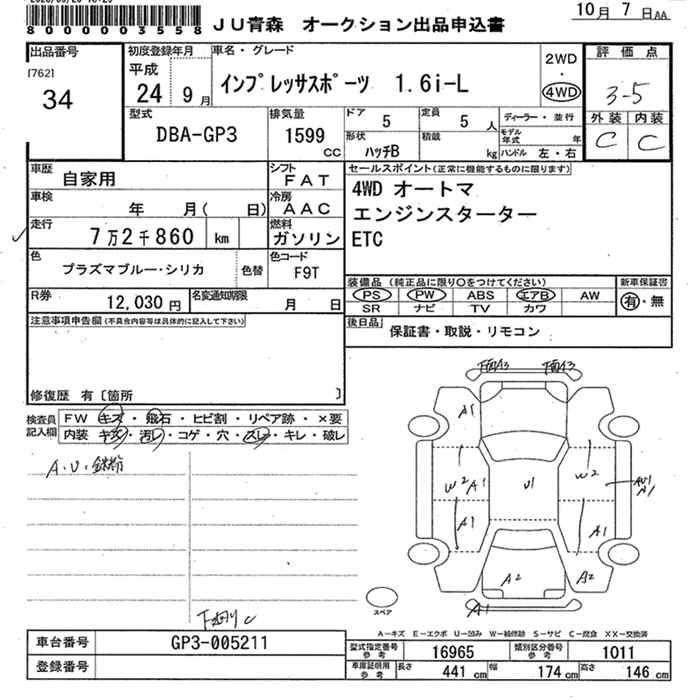 80000003558
JU青森 オークション出品申込書
10月 7日AA
出品番号
[762]
34
初度登録年月
平成
24年 9月
車名・グレード
インプレッサスポーツ 1.6i-L
2WD
・
4WD
評価点
3-5
外装 内装
C C
型式
DBA-GP3
排気量
1599
CC
ドア
5
定員
5人
形状
ハッチB
積載
kg
ディーラー・並行
モデル年式 年
ハンドル 左・右
車歴
自家用
シフト
FAT
車検
年 月( 日)
冷房
AAC
走行
7万2千860 km
燃料
ガソリン
色
プラズマブルー・シリカ
色替
色コード
F9T
R券
12,030円
名変通知期限
月 日
セールスポイント(正常に機能するものに限ります)
4WD オートマ
エンジンスターター
ETC
装備品(純正品に限り○をつけてください)
PS PW ABS エアB AW
SR ナビ TV カワ
新車保証書
有・無
後日品
保証書・取説・リモコン
注意事項申告欄(不具合内容等は具体的に記入して下さい)
修復歴 有〔箇所 〕
検査員記入欄
FW キズ・飛石・ヒビ割・リペア跡・×要
内装 キズ・汚レ・コゲ・穴・スレ・キレ・破レ
A・U・鉄粉
下廻りC
下面A3 下面A3
A1
W2 A1
U1
W2
A1
A1
A2
A2
A1
スペア
A－キズ E－エクボ U－凹み W－補修跡 S－サビ C－腐食 XX－交換済
車台番号
GP3-005211
登録番号
型式指定番号参考
16965
類別区分番号参考
1011
車庫証明用参考
長さ 441cm 幅 174cm 高さ 146cm